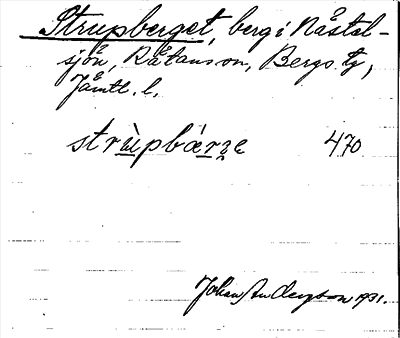 Strupberget, berg i Nästel-
sjön, Råtans sn, Bergs tg,
Jämtl. l.
strùpbárʒe 470
Johan Anderzson 1931.